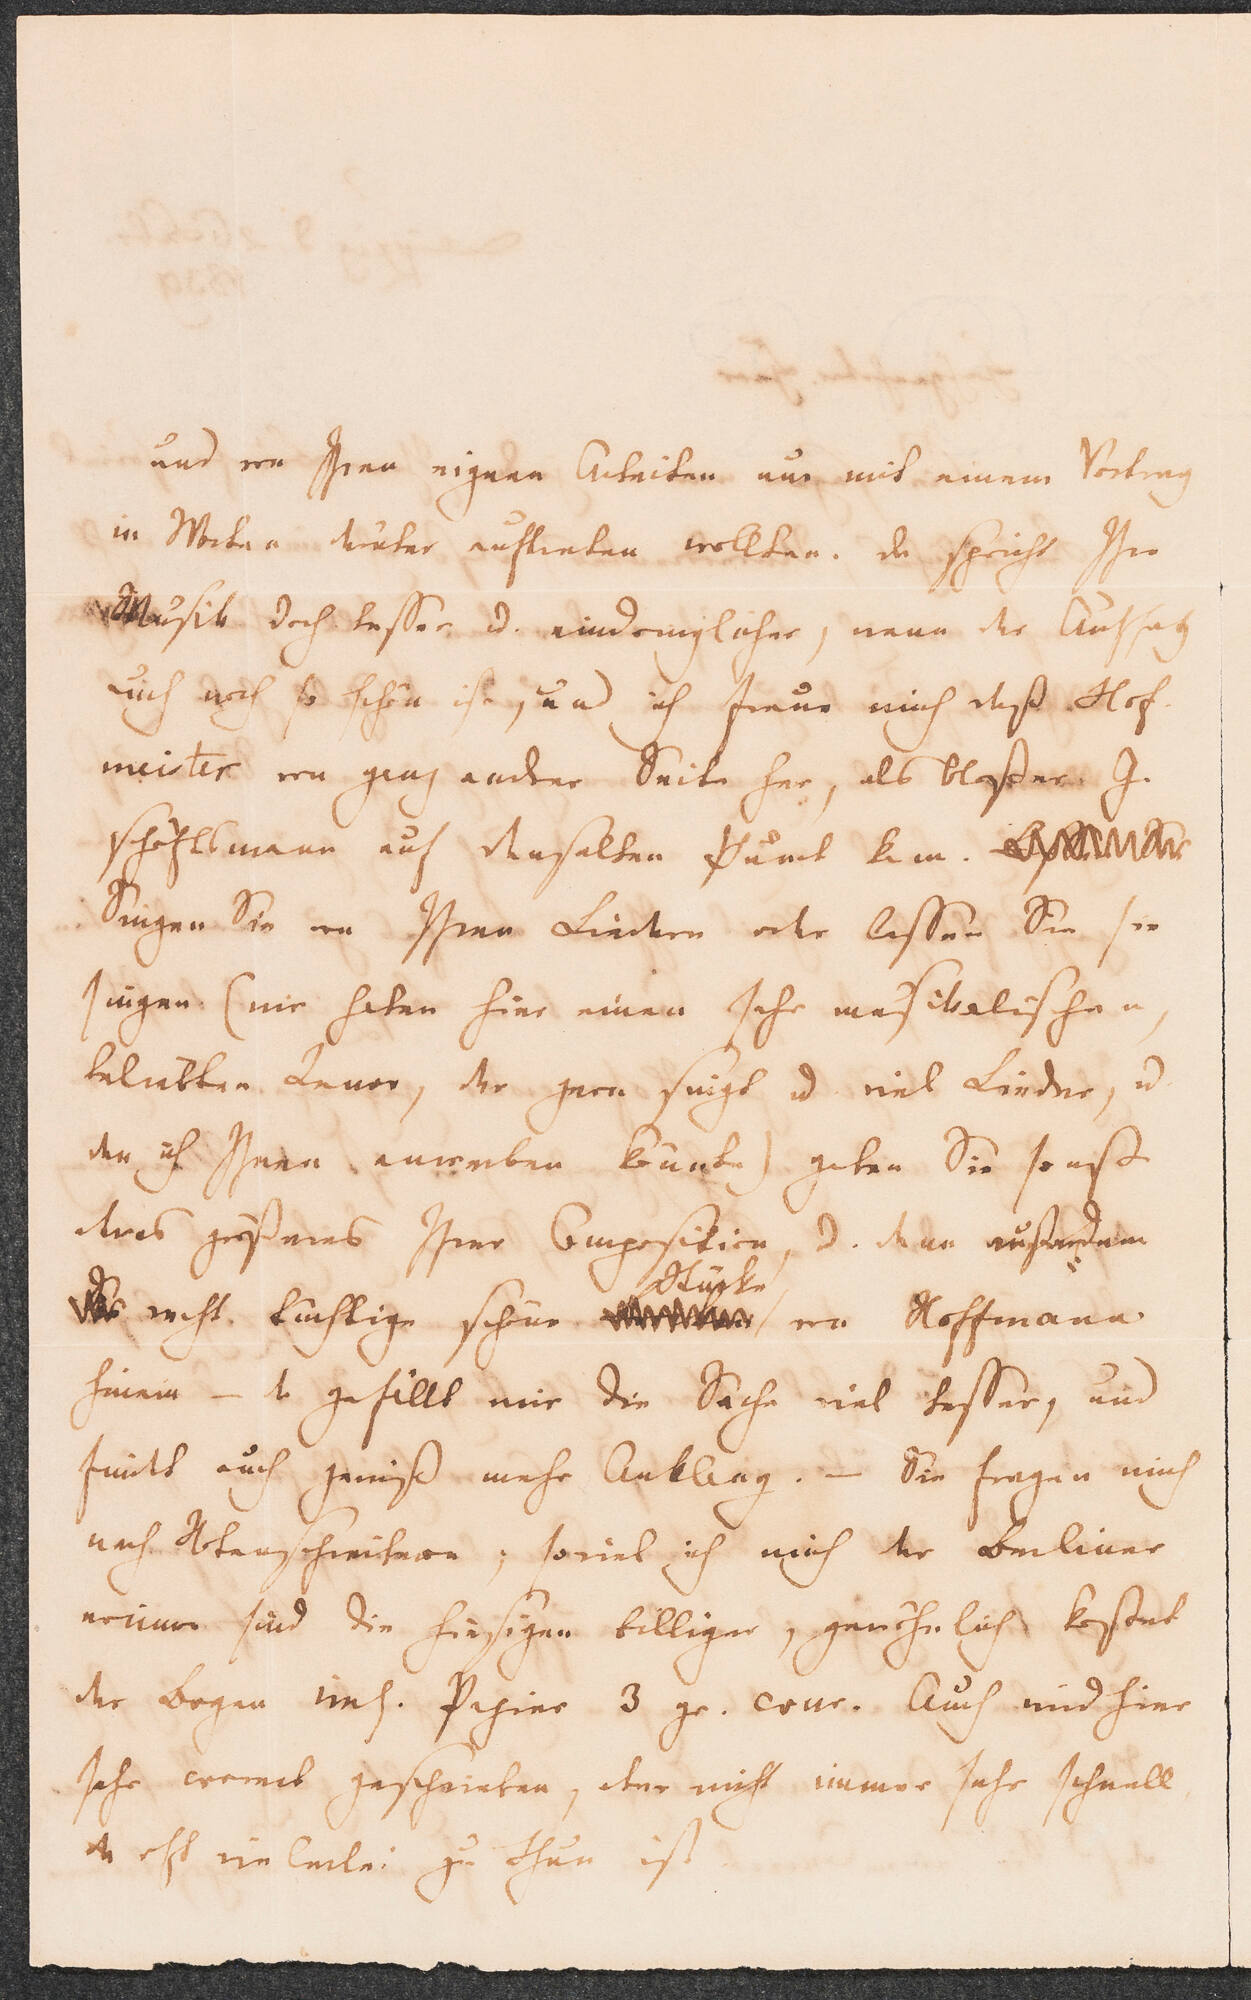 und von Ihren eignen Arbeiten nur mit einem Vortrag
in Worten drüber auftreten wollten. da spricht Ihre
Musik doch besser u. eindringlicher, wenn der Aufsatz
auch noch so schön ist, und ich freue mich daß Hof-
meister von ganz andrer Seite her, als bloßer Ge-
schäftsmann auf denselben Punct kam.
Singen Sie von Ihren Liedern oder lassen Sie sie
singen (wir haben hier einen sehr musikalischen,
beliebten Tenor, der gern singt u viel Lieder, u
den ich Ihnen anwerben könnte) geben Sie sonst
etwas größeres Ihrer Composition, u. dann außerdem
recht tüchtige schöne Stücke von Hoffmann
hinein – da gefällt mir die Sache viel besser, und
findet auch gewiß mehr Anklang. – Sie fragen mich
nach Notenschreibern; soviel ich mich der Berliner
erinnre sind die hiesigen billiger, gewöhnlich kostet
der Bogen incl. Papier 3 gr. cour. Auch wird hier
sehr correct geschrieben, aber nicht immer sehr schnell
da oft vielerlei zu thun ist